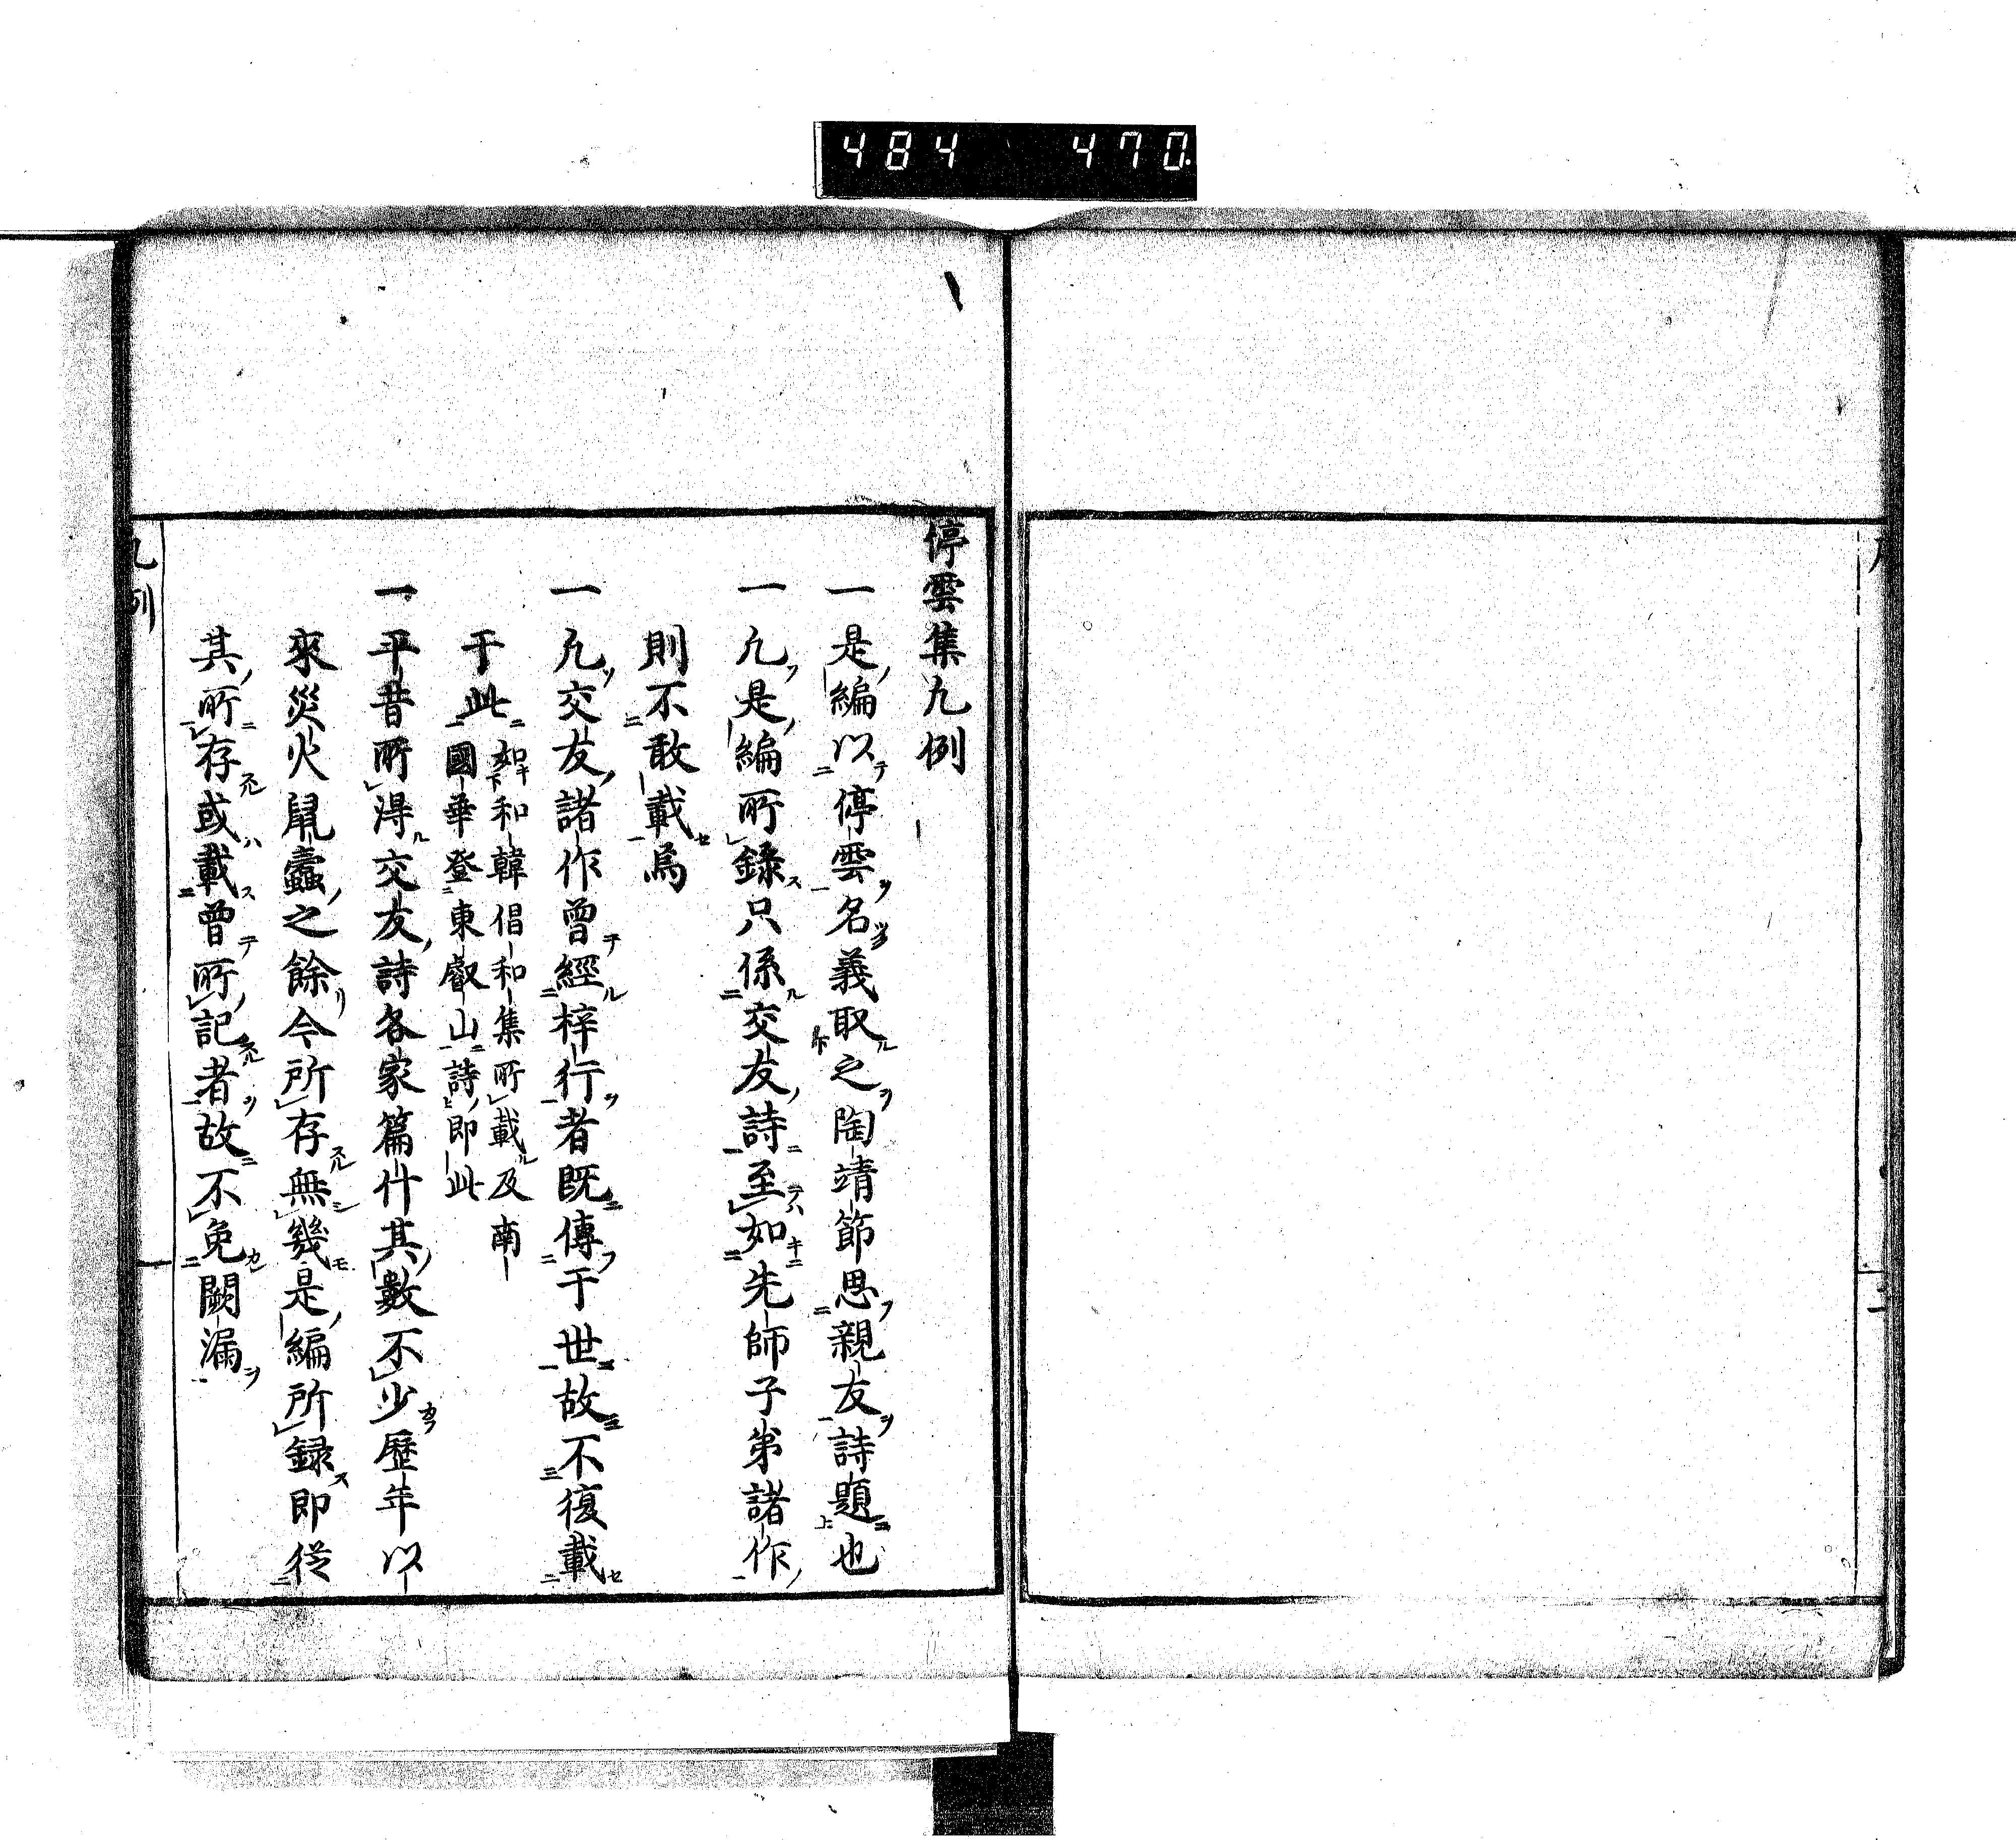 484 470
停雲集凡例
一是編以停雲名義取之陶靖節思親友詩題也
一凡是編所錄只係交友詩至如先師子弟諸作
則不敢載焉
一凡交友諸作曾經梓行者既傳于世故不復載
于此如和韓倡和集所載及南
國華登東叡山詩即此
一平昔所得交友詩各家篇什其數不少歷年以
來災火鼠蠹之餘今所存無幾是編所録即從
其所存或載曾所記者故不免闕漏
凡例